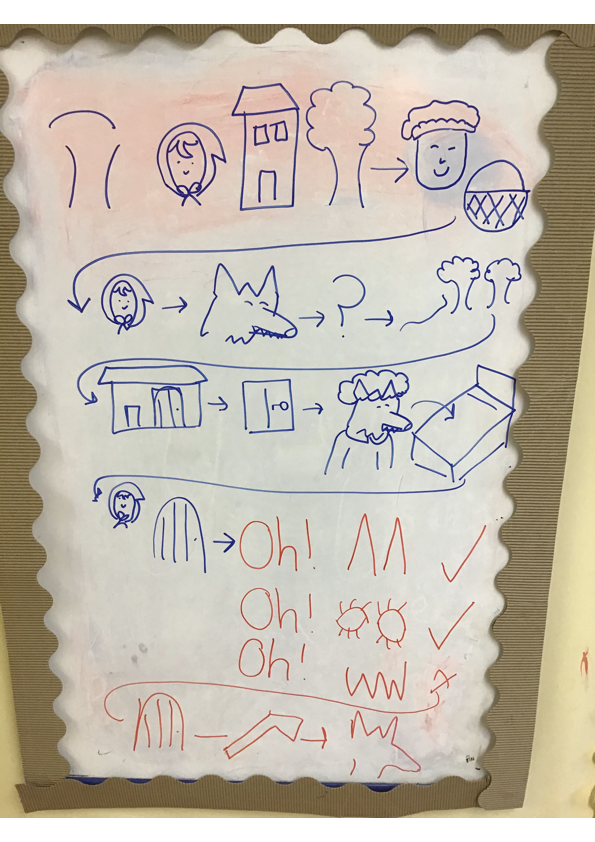 ?
Oh!
Oh!
Oh!